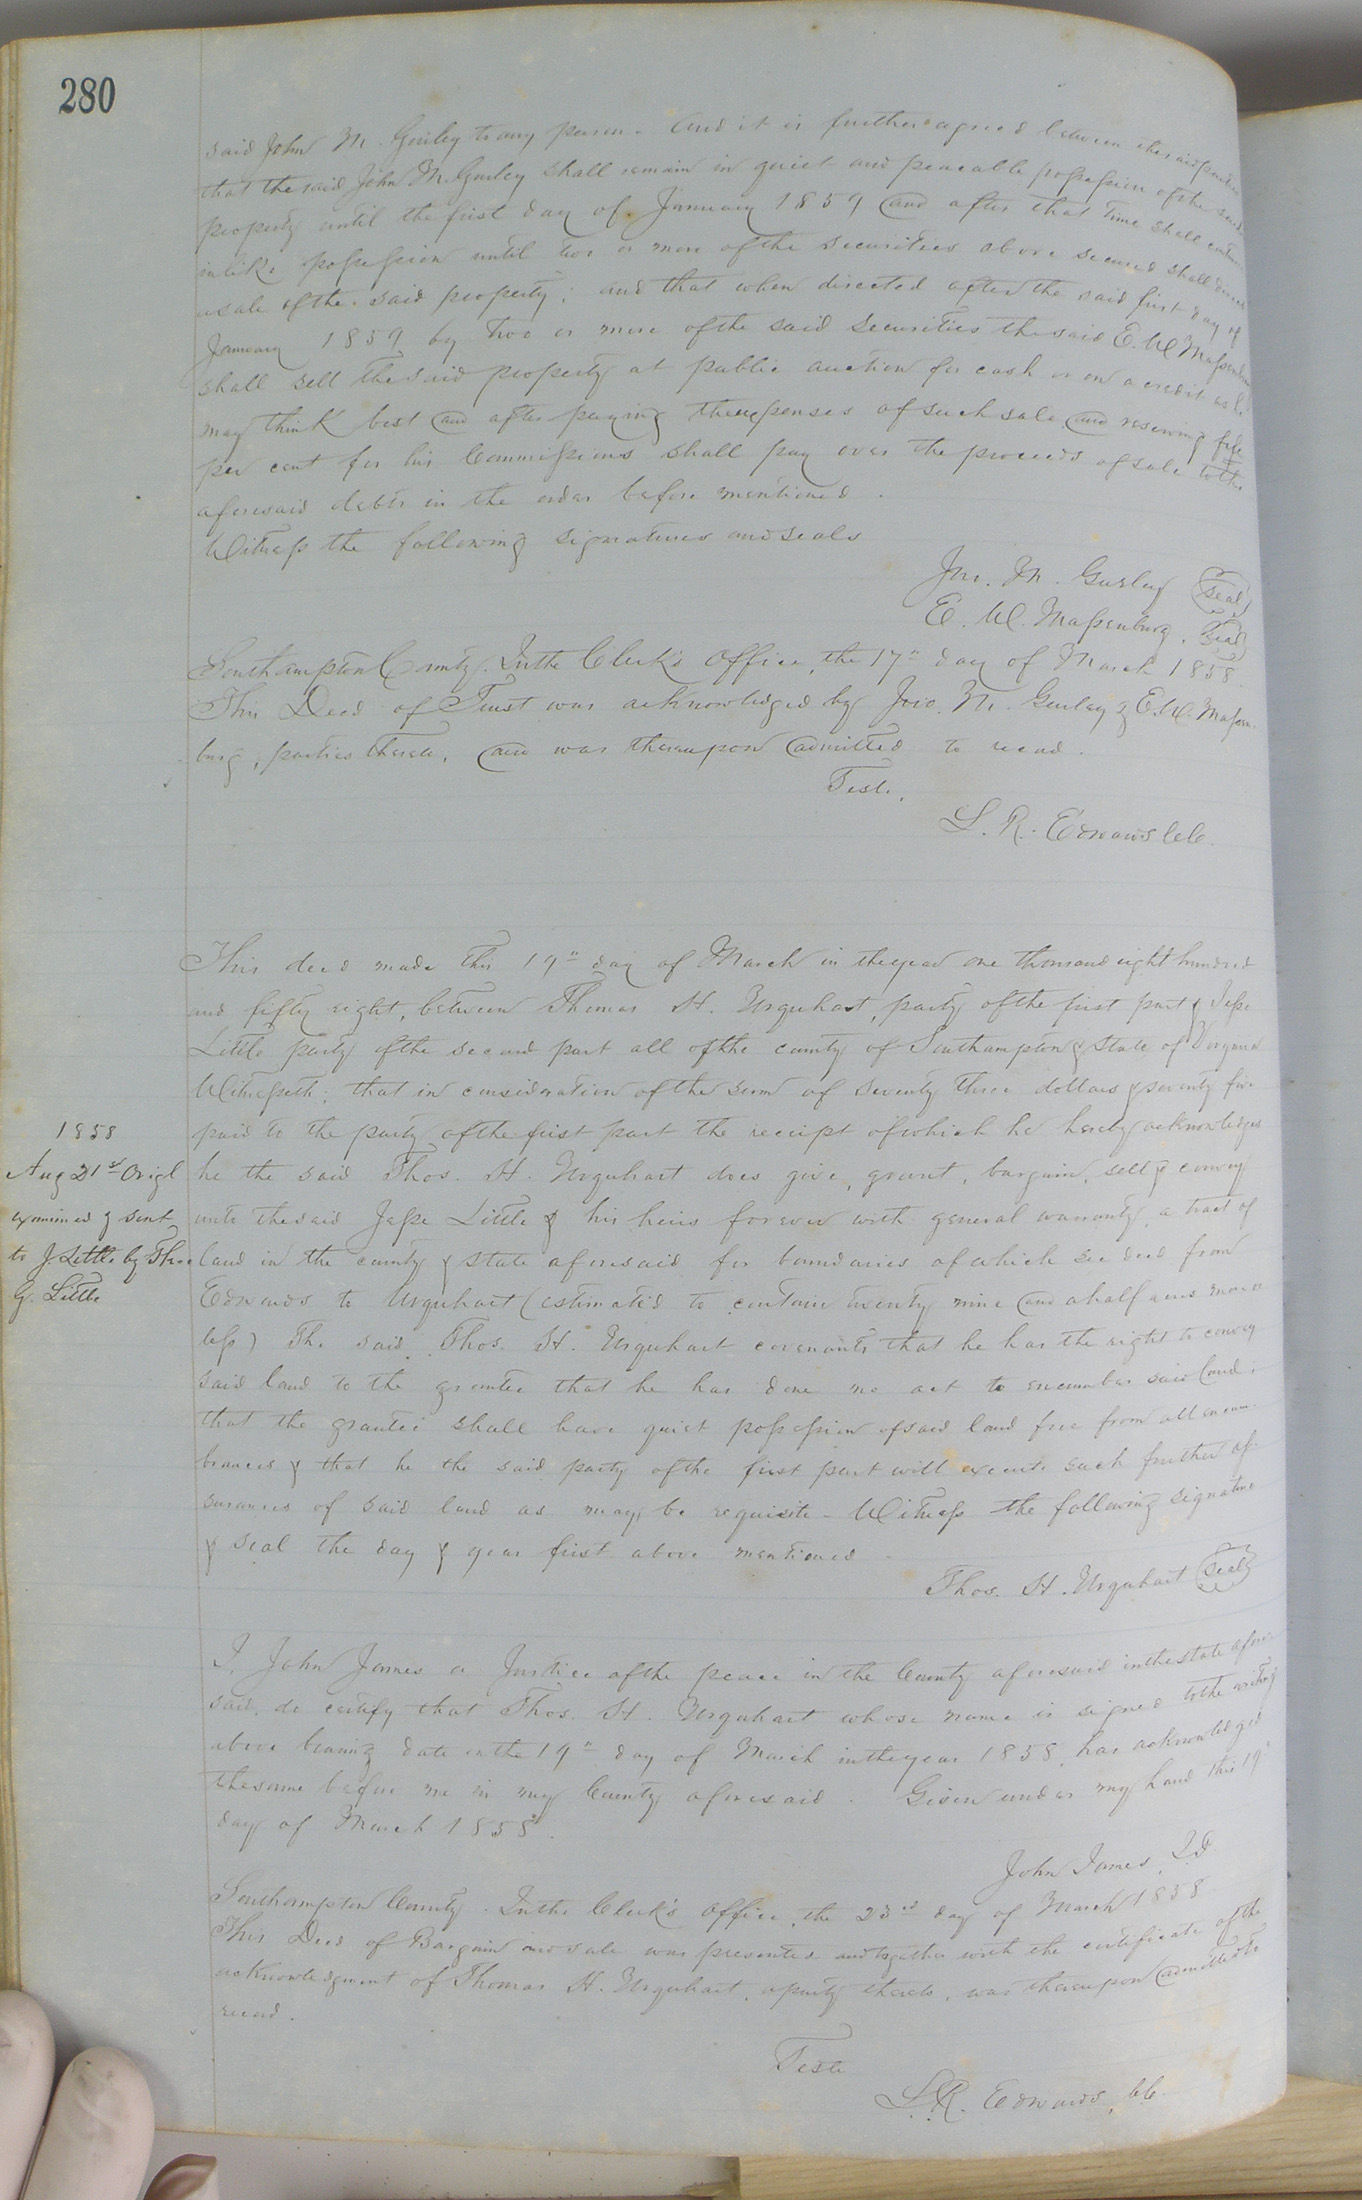 280
said John M. Gurley to any person. And it is further agreed between the said parties
that the said John M. Gurley shall remain in quiet and peacable possession of the said
property until the first day of January 1859 and after that time shall continue
in like possession until two or more of the securities above secured shall direct
a sale of the said property; and that when directed after the said first day of
January 1859 by two or more of the said securities the said E. W. Massenburg
shall sell the said property at public auction for cash or on a credit as he
may think best and after paying the expenses of such sale and reserving five
per cent for his Commissions shall pay over the proceeds of sale to the
aforesaid debts in the order before mentioned.
Witness the following signatures and seals
Jno. M. Gurley Seal
E. W. Massenburg. Seal
Southampton County. In the Clerk's Office, the 17th day of March 1858.
This Deed of Trust was acknowledged by Jno. M. Gurley & E. W. Massen-
burg, parties thereto, and was thereupon admitted to record.
Teste.
L. R. Edwards CC.
This deed made this 19th day of March in the year one thousand eight hundred
and fifty eight, between Thomas H. Urquhart, party of the first part & Jesse
Little party of the second part all of the county of Southampton & State of Virginia
Witnesseth; that in consideration of the sum of seventy three dollars & seventy five
paid to the party of the first part the receipt of which he hereby acknowledges
he the said Thos. H. Urquhart does give, grant, bargain, sell & convey
unto the said Jesse Little & his heirs forever with general warranty, a tract of
land in the county & state aforesaid for boundaries of which see deed from
Edwards to Urquhart (estimated to contain twenty nine and a half acres more or
less) The said Thos. H. Urquhart covenants that he has the right to convey
said land to the grantee that he has done no act to encumber said land,
that the grantee shall have quiet possession of said land free from all encum-
brances & that he the said party of the first part will execute such further as-
surances of said land as may be requisite - Witness the following signature
& seal the day & year first above mentioned
Thos. H. Urquhart Seal
1858
Aug 21st Origl
examined & sent
to J. Little by Thos
G. Little
I, John James a Justice of the peace in the County aforesaid in the state afore-
said, do certify that Thos. H. Urquhart whose name is signed to the writing
above bearing date on the 19th day of March in the year 1858, has acknowledged
the same before me in my County aforesaid. Given under my hand this 19th
day of March 1858.
John James, J.P.
Southampton County. In the Clerk's Office, the 23rd day of March 1858
This Deed of Bargain and sale was presented and together with the certificate of the
acknowledgment of Thomas H. Urquhart, a party thereto, was thereupon admitted to
record.
Teste
L. R. Edwards, CC.